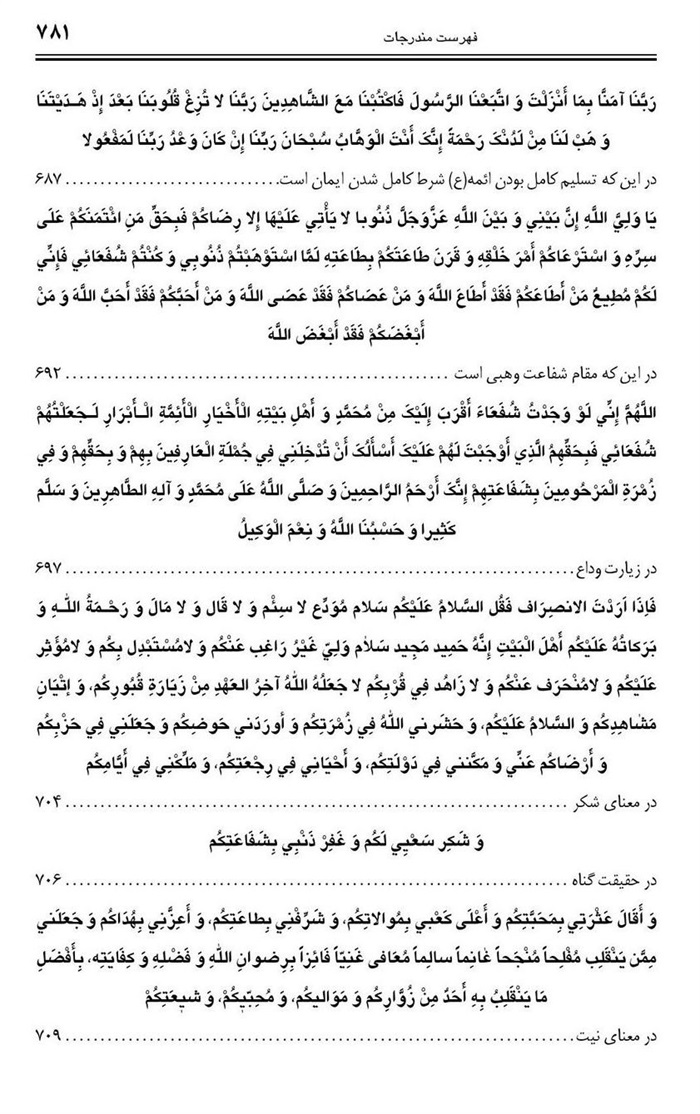 فهرست مندرجات ۷۸۱
رَبَّنَا آمَنَّا بِمَا أَنْزَلْتَ وَ اتَّبَعْنَا الرَّسُولَ فَاکْتُبْنَا مَعَ الشَّاهِدِینَ رَبَّنَا لا تُزِغْ قُلُوبَنَا بَعْدَ إِذْ هَـدَیْتَنَا
وَ هَبْ لَنَا مِنْ لَدُنْکَ رَحْمَةً إِنَّکَ أَنْتَ الْوَهَّابُ سُبْحَانَ رَبِّنَا إِنْ کَانَ وَعْدُ رَبِّنَا لَمَفْعُولا
در این که تسلیم کامل بودن ائمه(ع) شرط کامل شدن ایمان است............................... ۶۸۷
یَا وَلِيَّ اللَّهِ إِنَّ بَیْنِي وَ بَیْنَ اللَّهِ عَزَّوَجَلَّ ذُنُوبا لا یَأْتِي عَلَیْهَا إِلا رِضَاکُمْ فَبِحَقِّ مَنِ ائْتَمَنَکُمْ عَلَی
سِرِّهِ وَ اسْتَرْعَاکُمْ أَمْرَ خَلْقِهِ وَ قَرَنَ طَاعَتَکُمْ بِطَاعَتِهِ لَمَّا اسْتَوْهَبْتُمْ ذُنُوبِي وَ کُنْتُمْ شُفَعَائِي فَإِنِّي
لَکُمْ مُطِیعٌ مَنْ أَطَاعَکُمْ فَقَدْ أَطَاعَ اللَّهَ وَ مَنْ عَصَاکُمْ فَقَدْ عَصَی اللَّهَ وَ مَنْ أَحَبَّکُمْ فَقَدْ أَحَبَّ اللَّهَ وَ مَنْ
أَبْغَضَکُمْ فَقَدْ أَبْغَضَ اللَّهَ
در این که مقام شفاعت وهبی است ..................................................... ۶۹۲
اللَّهُمَّ إِنِّي لَوْ وَجَدْتُ شُفَعَاءَ أَقْرَبَ إِلَیْکَ مِنْ مُحَمَّدٍ وَ أَهْلِ بَیْتِهِ الْأَخْیَارِ الْأَئِمَّةِ الْـأَبْرَارِ لَـجَعَلْتُهُمْ
شُفَعَائِي فَبِحَقِّهِمُ الَّذِي أَوْجَبْتَ لَهُمْ عَلَیْکَ أَسْأَلُکَ أَنْ تُدْخِلَنِي فِي جُمْلَةِ الْعَارِفِینَ بِهِمْ وَ بِحَقِّهِمْ وَ فِي
زُمْرَةِ الْمَرْحُومِینَ بِشَفَاعَتِهِمْ إِنَّکَ أَرْحَمُ الرَّاحِمِینَ وَ صَلَّی اللَّهُ عَلَی مُحَمَّدٍ وَ آلِهِ الطَّاهِرِینَ وَ سَلَّم
کَثِیرا وَ حَسْبُنَا اللَّهُ وَ نِعْمَ الْوَکِیلُ
در زیارت وداع.................................................................... ۶۹۷
فَاِذَا اَرَدْتَ الانصِرَاف فَقُل السَّلامُ عَلَیْکُم سَلام مُوَدِّع لا سِئْم وَ لا قَال وَ لا مَالَ وَ رَحْـمَةُ اللّـهِ وَ
بَرَکاتُهُ عَلَیْکُم أَهْلَ الْبَیْتِ إِنَّهُ حَمِید مَجِید سَلام وَلِيّ غَیْرُ رَاغِب عَنْکُم وَ لامُسْتَبْدِل بِکُم وَ لامُؤْثِر
عَلَیْکُم وَ لامُنْحَرَف عَنْکُم وَ لا زَاهُد فِي قُرْبِکُم لا جَعَلَهُ اللهُ آخِرُ العَهْدِ مِنْ زِیَارَةِ قُبُورِکُم، وَ إتْیَانِ
مَشَاهِدِکُم وَ السَّلامُ عَلَیْکُم، وَ حَشَرنِي اللهُ فِي زُمْرَتِکُم وَ أورَدَني حَوضِکُم وَ جَعَلَنِي فِي حَزْبِکُم
وَ أَرْضَاکُم عَنِّي وَ مَکَّنني فِي دَوْلَتِکُم، وَ أَحْیَانِي فِي رِجْعَتِکُم، وَ مَلِّکْنِي فِي أَیَّامِکُم
در معنای شکر ................................................................... ۷۰۴
وَ شَکِر سَعْیِي لَکُم وَ غَفِرْ ذَنْبِي بِشَفَاعَتِکُم
در حقیقت گناه ................................................................... ۷۰۶
وَ أَقَالَ عَثْرَتِي بِمَحَبَّتِکُم وَ أَعْلَی کَعْبي بِمُوالاتِکُم، وَ شَرِّفْنِي بِطاعَتِکُم، وَ أَعِزَّنِي بِهُدَاکُم وَ جَعَلني
مِمَّن یَنْقَلِب مُفْلِحاً مُنْجَحاً غَانِماً سالِماً مُعَافی غَنِیّاً فَائِزاً بِرِضوانِ اللهِ وَ فَضْلِهِ وَ کِفَایَتِه، بِأَفْضَلِ
مَا یَنْقَلِبُ بِهِ أَحَدٌ مِنْ زُوَّارِکُم وَ مَوَالیکُم، وَ مُحِبّیِکُمْ، وَ شیعَتِکُمْ
در معنای نیت.................................................................... ۷۰۹